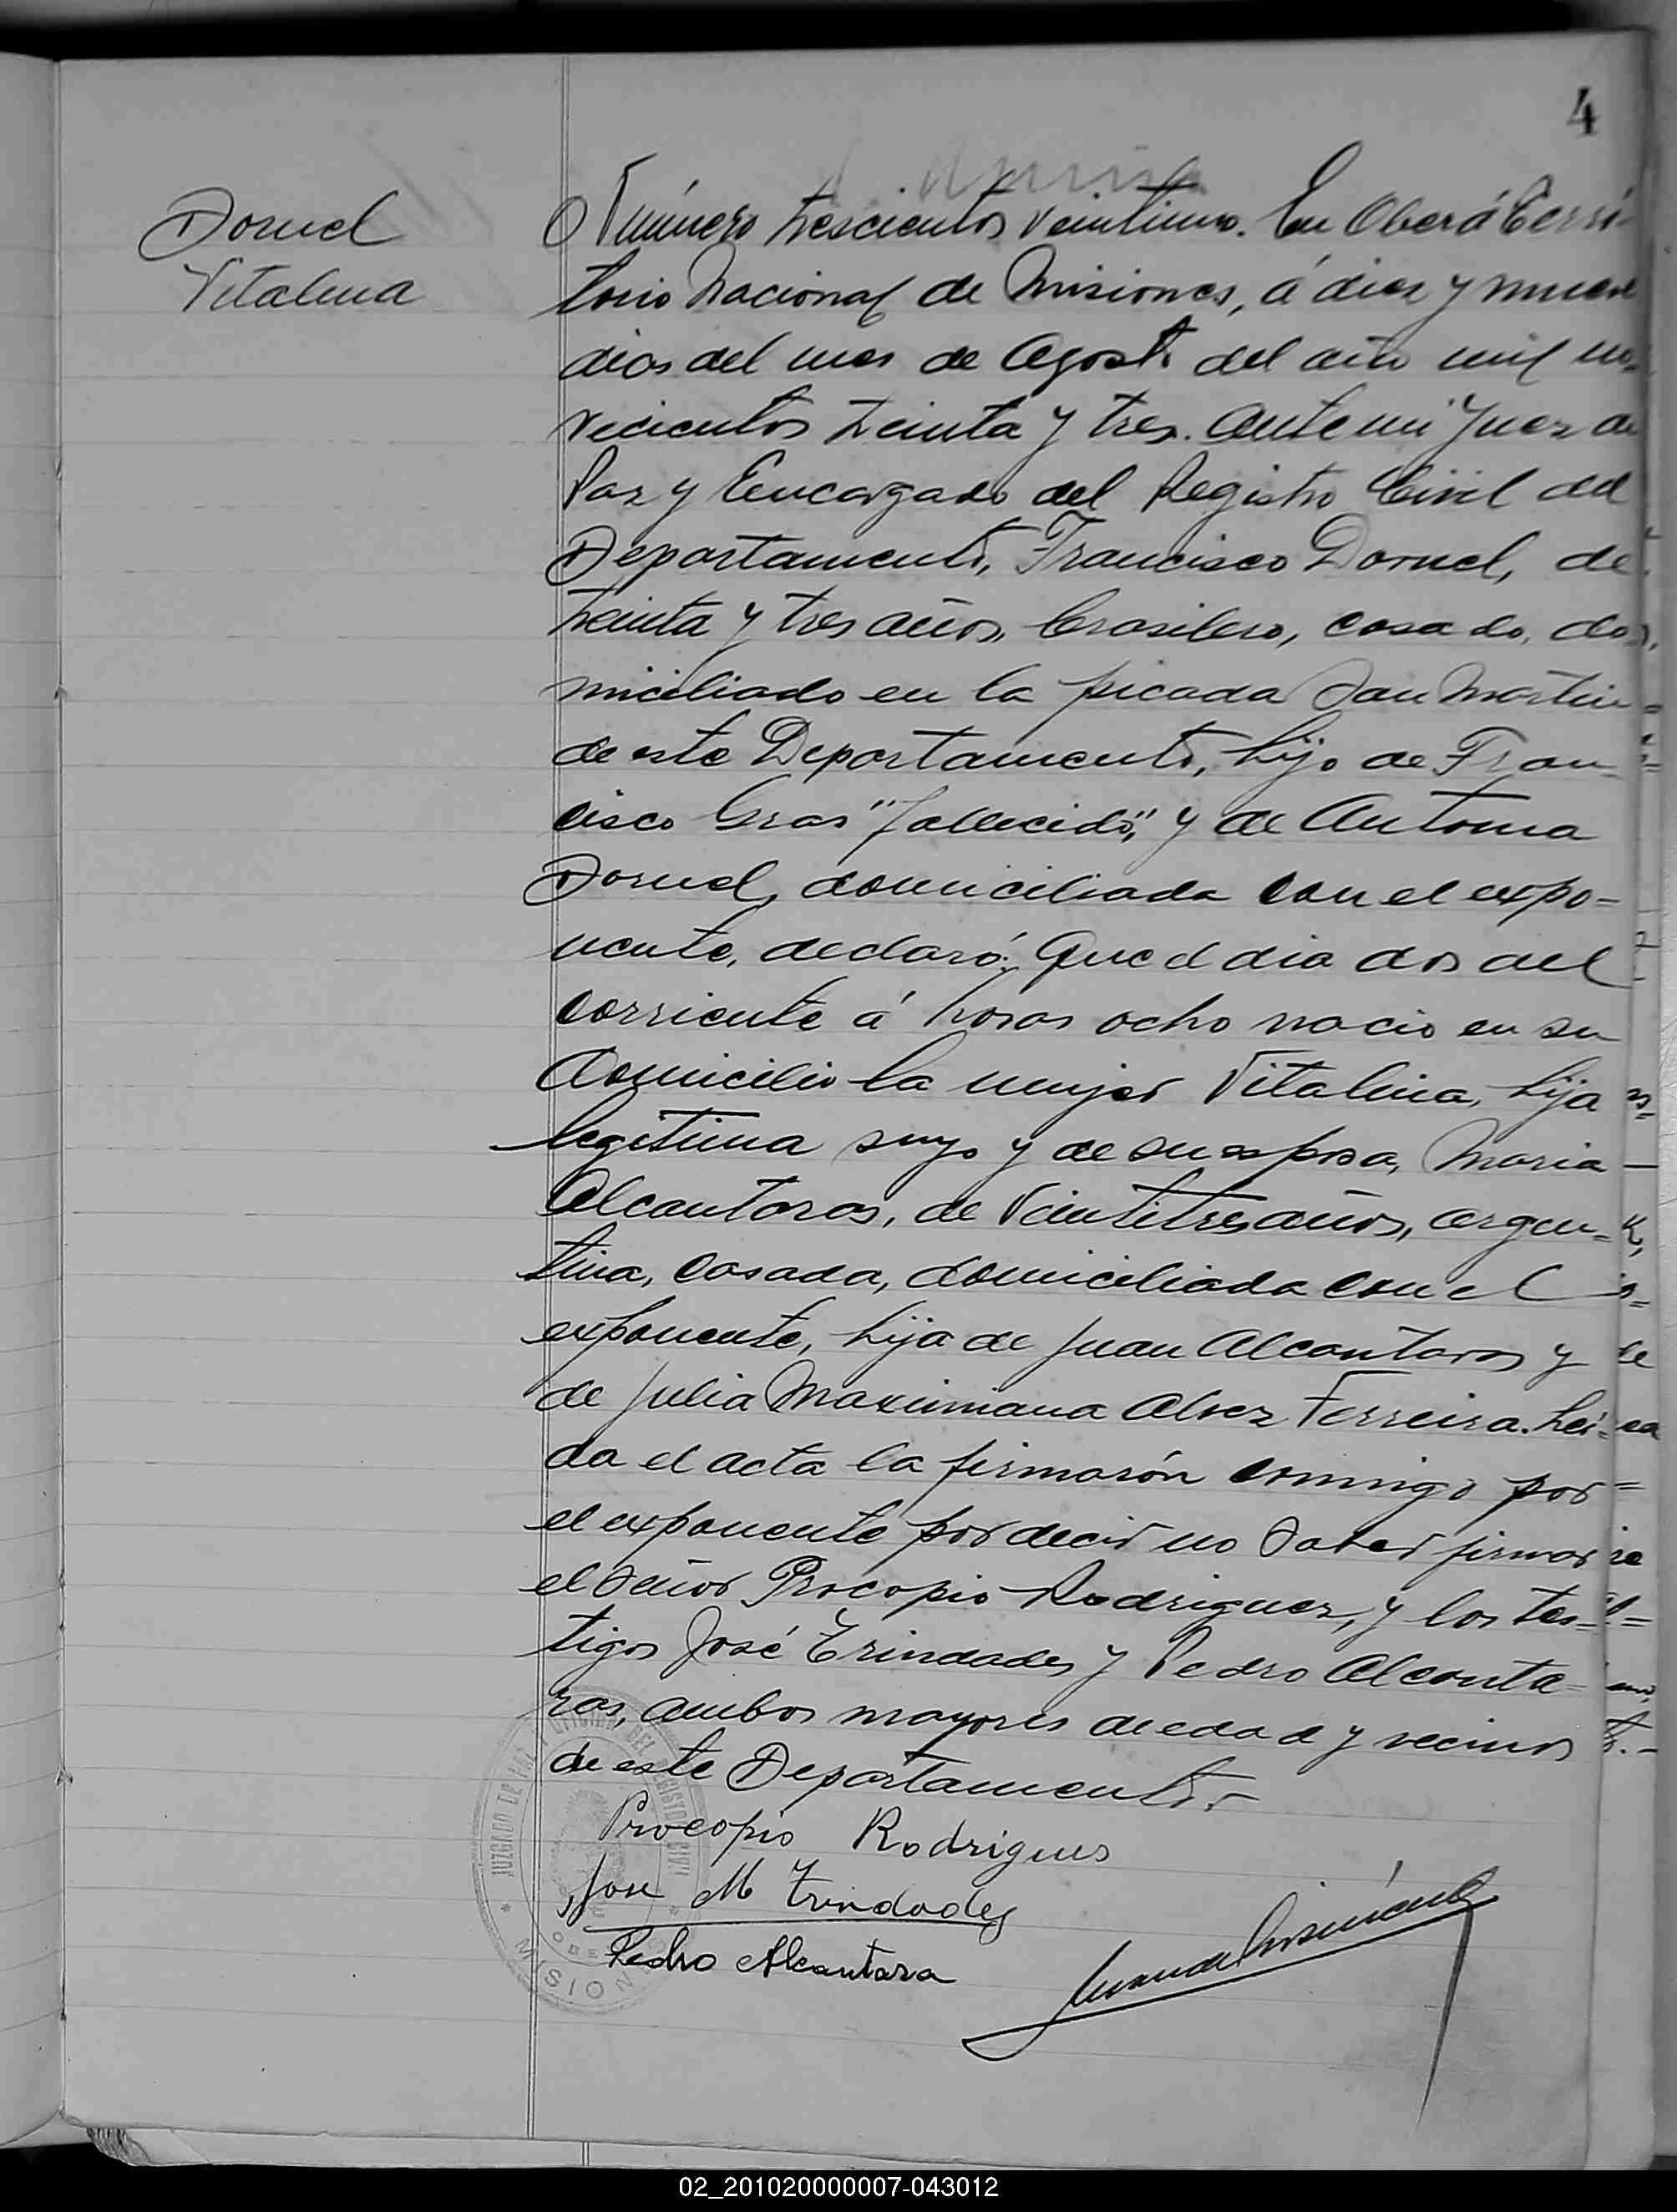 4
Dornel
Vitalina
Número trescientos veintiuno. En Oberá Terri-
torio Nacional de Misiones, á diez y nueve
dias del mes de Agosto del año mil no-
vecientos treinta y tres. Ante mi Juez de
Paz y Encargado del Registro Civil del
Departamento, Francisco Dornel, de
treinta y tres años, brasilero, casado, do-
miciliado en la picada San Martin
de este Departamento, hijo de Fran-
cisco Gras "fallecido", y de Antonia
Dornel, domiciliada con el expo-
nente, declaró: Que el dia dos del
corriente á horas ocho nacio en su
domicilio la mujer Vitalina, hija
legitima suya y de su esposa, Maria
Alcantaras, de veintitres años, argen-
tina, casada, domiciliada con el
exponente, hija de Juan Alcantaras y
de Julia Maximiana Alvez Ferreira. Leí-
da el acta la firmarón conmigo por
el exponente por decir no saber firmar
el señor Procopio Rodriguez, y los tes-
tigos José Trindades y Pedro Alcanta-
ras, ambos mayores de edad y vecinos
de este Departamento.-
Procopio Rodrigues
Jose M Trindades
Pedro Alcantara
JUZGADO DE PAZ Y OFICINA DEL REGISTRO CIVIL
MISIONES
02_201020000007-043012